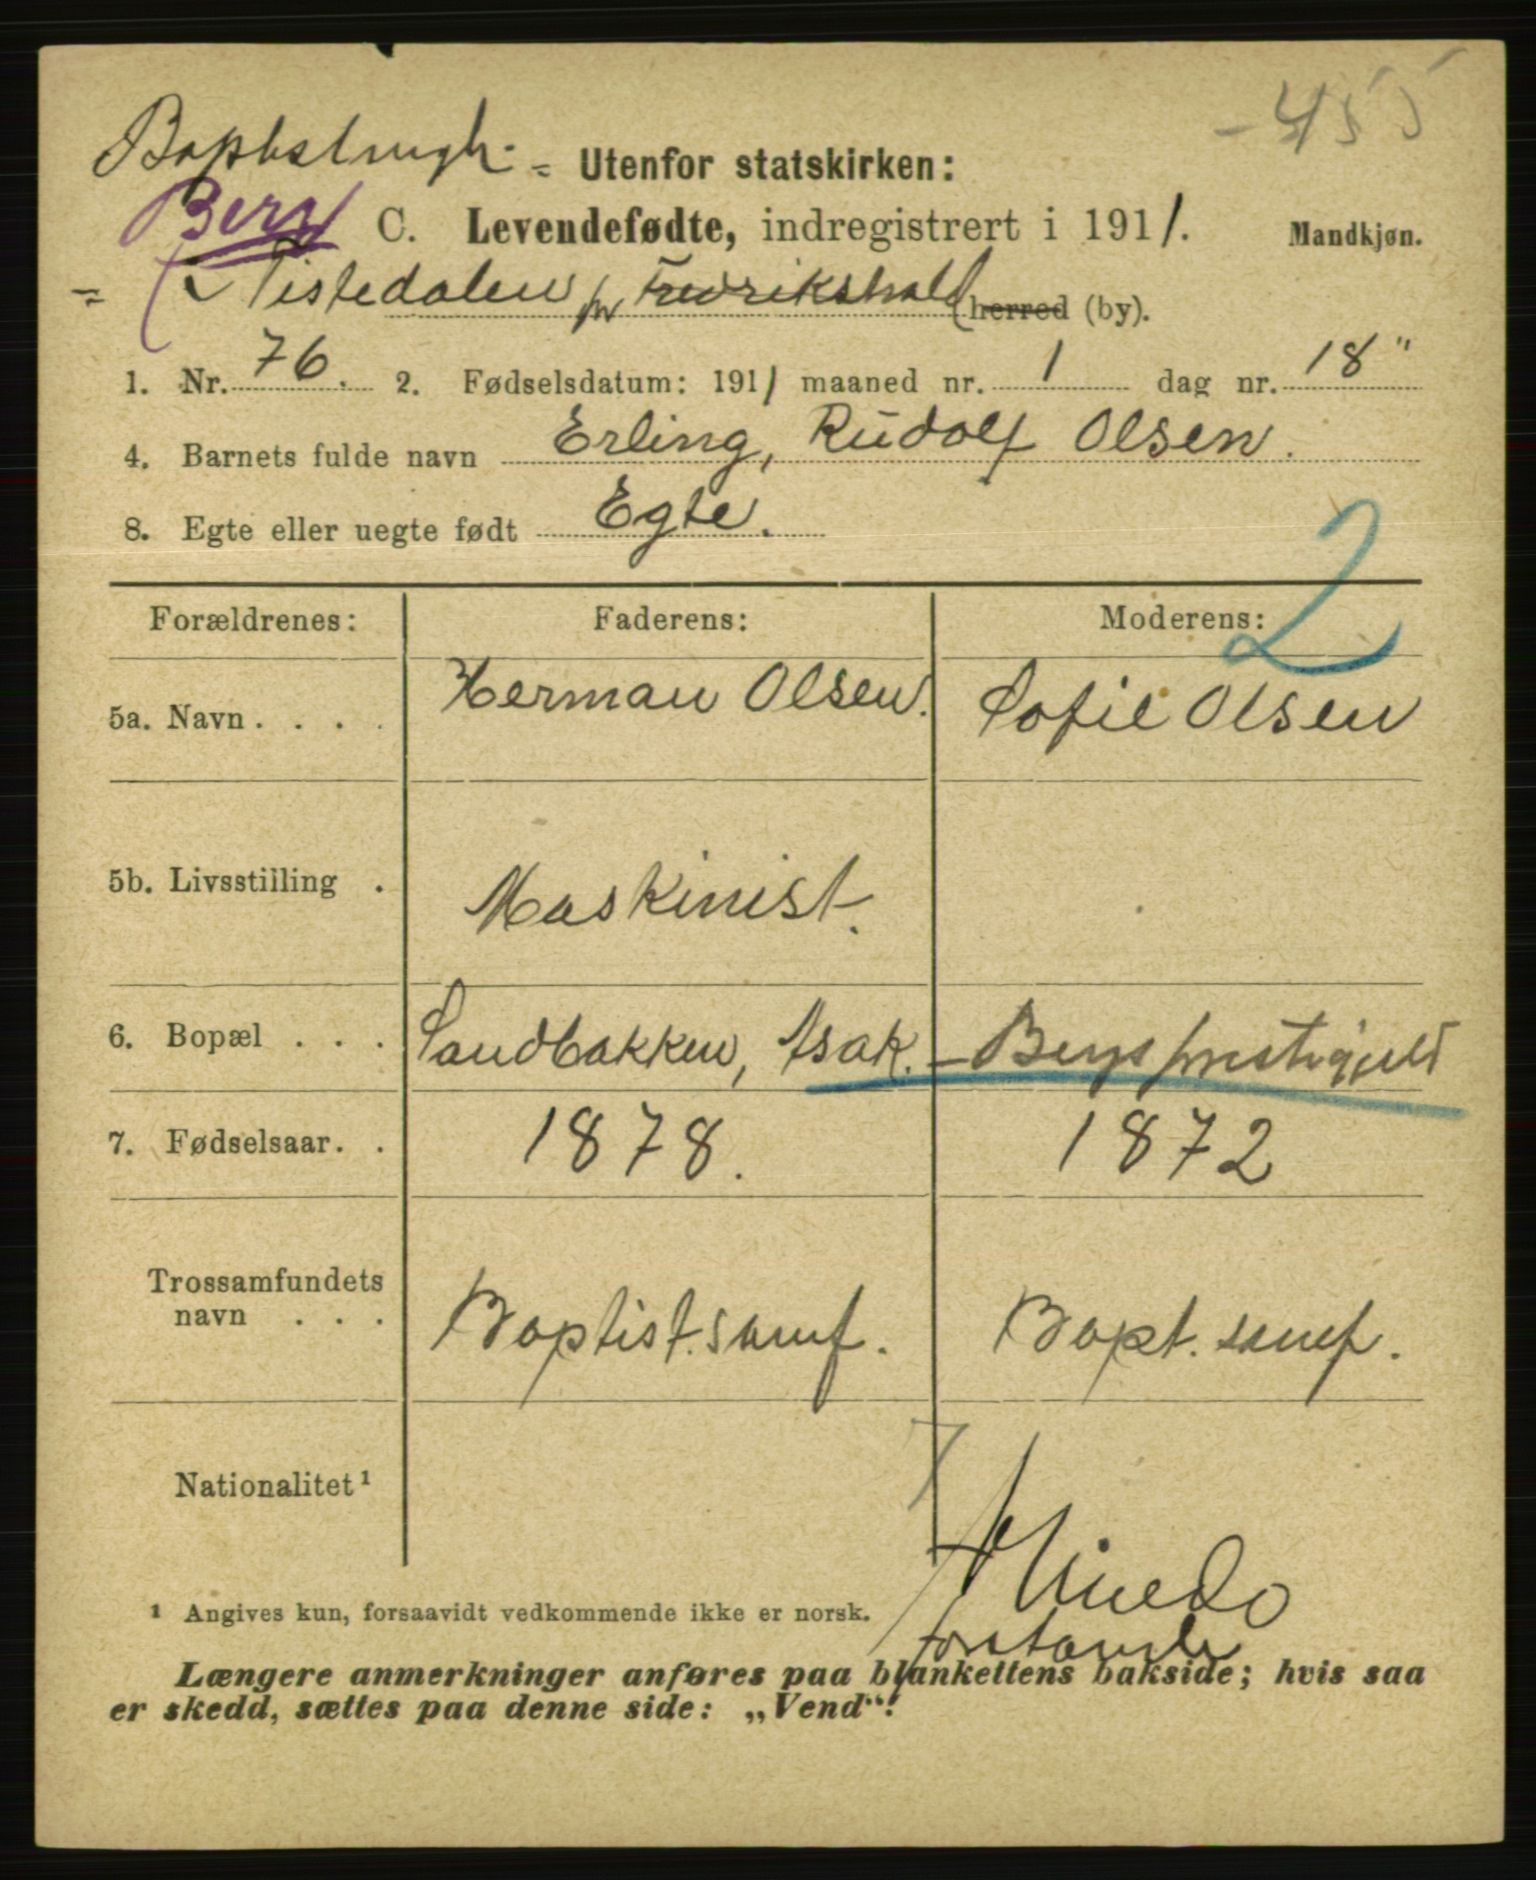 - 455
= Utenfor statskirken:
Berg C. Levendefødte, indregistrert i 1911. Mandkjøn.
= Tistedalen pr Fredrikshald herred (by).
1. Nr. 76. 2. Fødselsdatum: 1911 maaned nr. 1 dag nr. 18"
4. Barnets fulde navn Erling, Rudolf Olsen.
8. Egte eller uegte født Egte.
2
Forældrenes: Faderens: Moderens:
5a. Navn . . . . Herman Olsen. Sofie Olsen
5b. Livsstilling . Maskinist.
6. Bopæl . . . Sandbakken, Isak. - Bergs prestegjeld
7. Fødselsaar. . 1878. 1872
Trossamfundets
navn . . . Baptist.samf. Bapt. samf.
7
Nationalitet¹
¹ Angives kun, forsaavidt vedkommende ikke er norsk.
forstander
Længere anmerkninger anføres paa blankettens bakside; hvis saa
er skedd, sættes paa denne side: „Vend“!